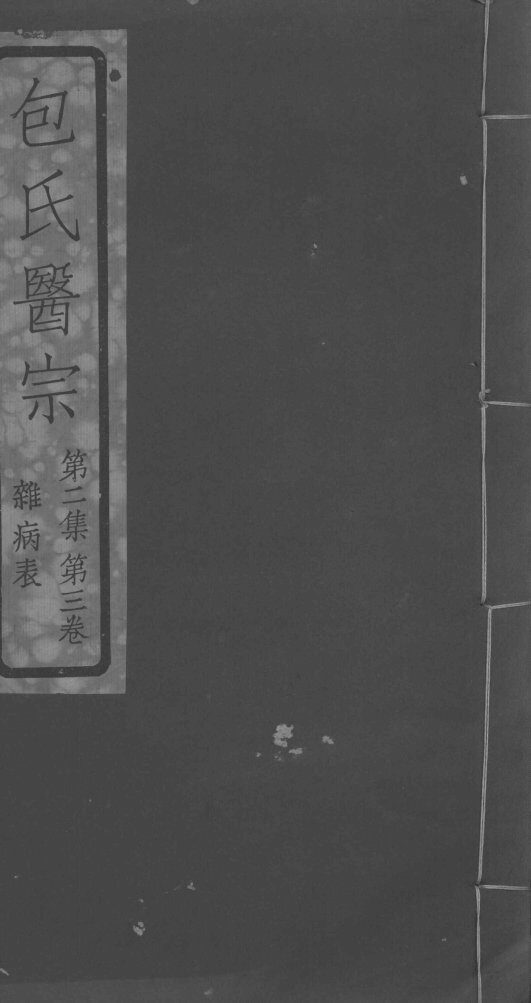 包氏醫宗
第二集第三卷
雜病表